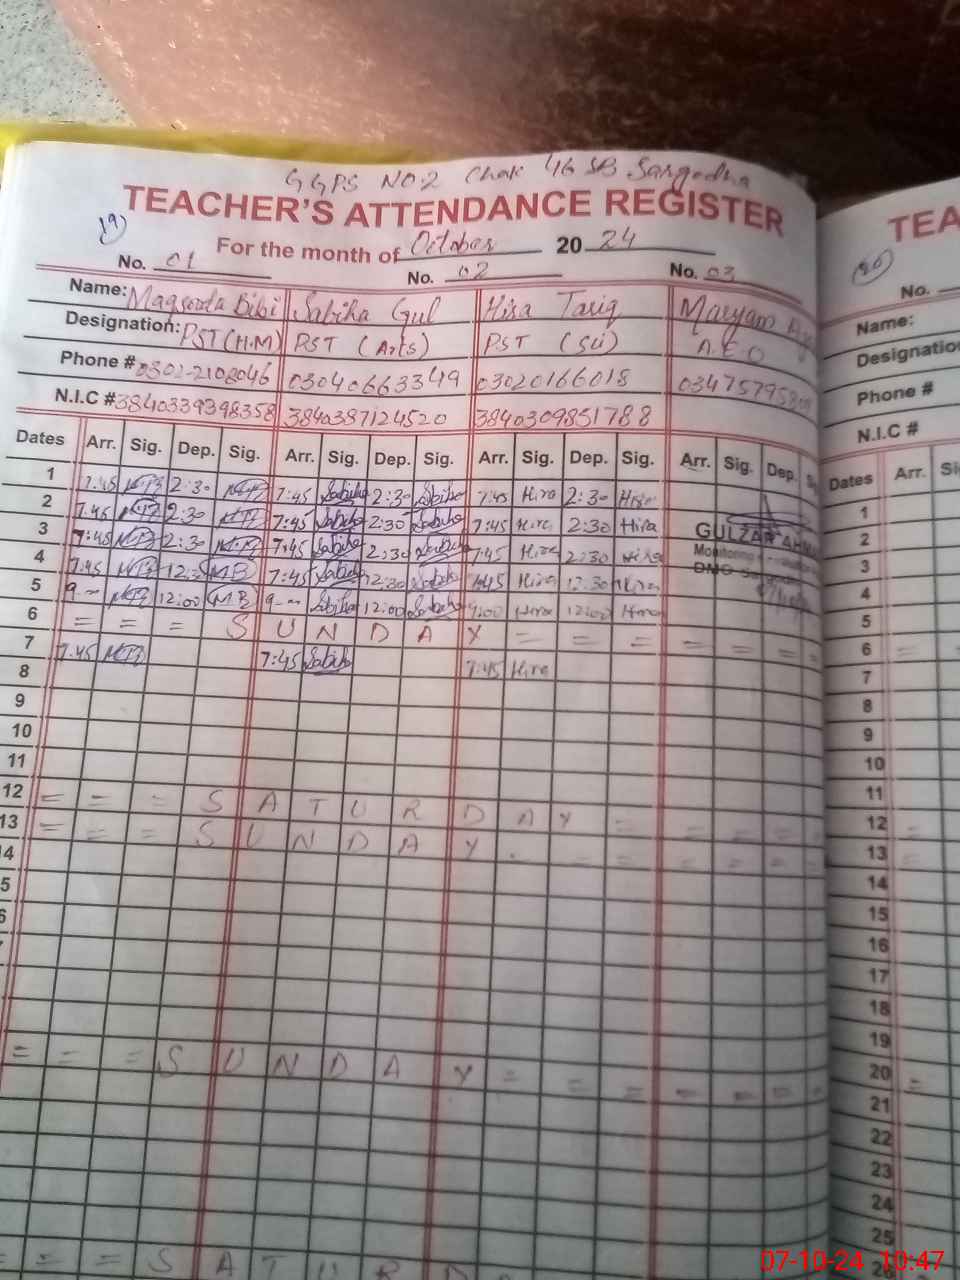 GGPS NO:2 Chak 46 SB Sargodha
TEACHER'S ATTENDANCE REGISTER
TEA
(19)
For the month of October 2024
(20)
No. 01 No. 02 No. 03
No.
Name: Maqsooda Bibi Sabiha Gul Hira Tariq Maryam
Name:
Designation: PST (H.M) PST (Arts) PST (Sci) A.E.O
Designation
Phone # 0302-2108046 03040663349 03020166018
Phone #
N.I.C # 3840339398358 3840387124520 3840309851788
N.I.C #
Dates Arr. Sig. Dep. Sig. Arr. Sig. Dep. Sig. Arr. Sig. Dep. Sig. Arr. Sig. Dep.
Dates Arr.
1 7:45 2:30 7:45 Sabiha 2:30 Sabiha 7:45 Hira 2:30 Hira
1
2 7:45 2:30 7:45 Sabiha 2:30 Sabiha 7:45 Hira 2:30 Hira
GULZAR AHMA
2
3 7:45 2:30 7:45 Sabiha 2:30 Sabiha 7:45 Hira 2:30 Hira
Monitoring
3
4 7:45 12:30 MB 7:45 Sabiha 12:30 Sabiha 7:45 Hira 12:30 Hira
DMO
4
5 9-- 12:00 MB 9-- Sabiha 12:00 Sabiha 9:00 Hira 12:00 Hira
5
6 = = = S U N D A Y = = = = = = =
6 = =
7 7:45 7:45 Sabiha 7:45 Hira
7
8
8
9
9
10
10
11
11
12 = = = S A T U R D A Y = = = =
12 =
13 = = = S U N D A Y . = = = = = =
13 =
14
14
5
15
6
16
17
18
19
= = = S U N D A Y = = = = = =
20 =
21
22
23
24
25
= = = S A T U R D
26
07-10-24 10:47